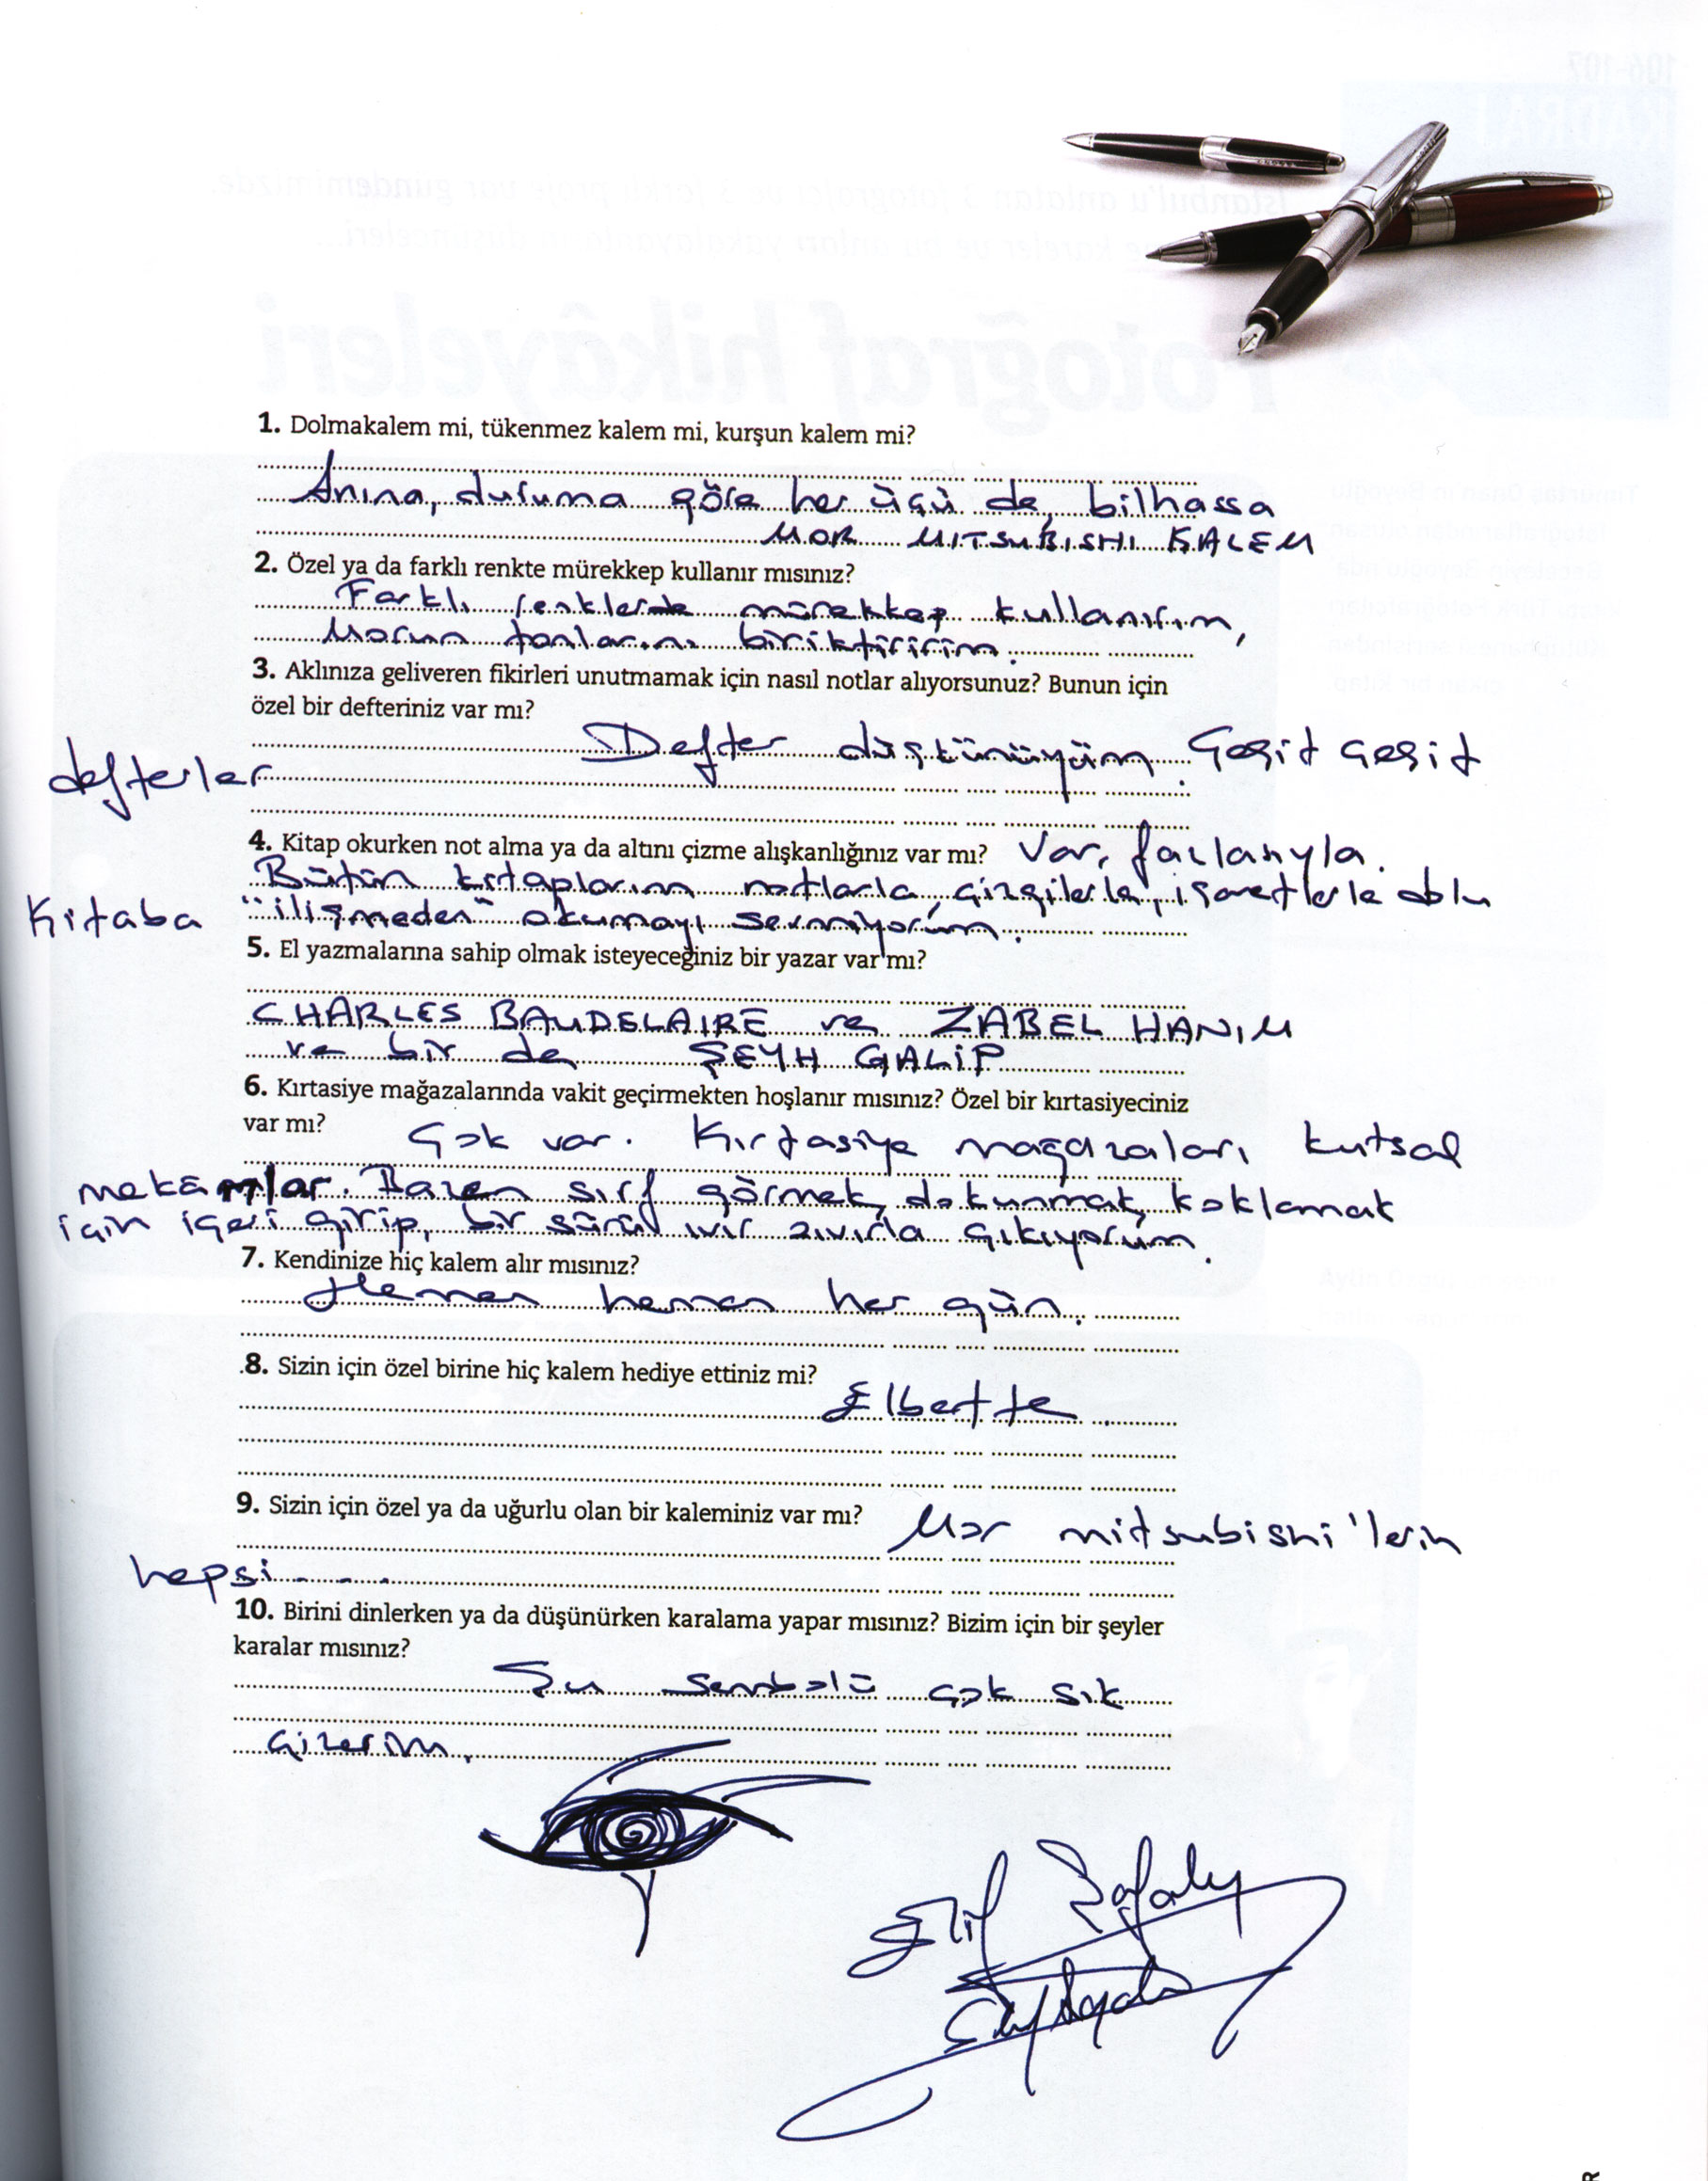 1. Dolmakalem mi, tükenmez kalem mi, kurşun kalem mi?
Anına, duruma göre her üçü de, bilhassa
MOR MITSUBISHI KALEM
2. Özel ya da farklı renkte mürekkep kullanır mısınız?
Farklı renklerde mürekkep kullanırım,
Morun tonlarını biriktiririm.
3. Aklınıza geliveren fikirleri unutmamak için nasıl notlar alıyorsunuz? Bunun için
özel bir defteriniz var mı?
Defter düşkünüyüm. Çeşit çeşit
defterler
4. Kitap okurken not alma ya da altını çizme alışkanlığınız var mı? Var, fazlasıyla.
Bütün kitaplarım notlarla, çizgilerle, işaretlerle dolu
Kitaba "ilişmeden" okumayı sevmiyorum.
5. El yazmalarına sahip olmak isteyeceğiniz bir yazar var mı?
CHARLES BAUDELAIRE ve ZABEL HANIM
ve bir de ŞEYH GALİP
6. Kırtasiye mağazalarında vakit geçirmekten hoşlanır mısınız? Özel bir kırtasiyeciniz
var mı? Çok var. Kırtasiye mağazaları kutsal
mekânlar. Bazen sırf görmek, dokunmak, koklamak
için içeri girip, bir sürü ıvır zıvırla çıkıyorum.
7. Kendinize hiç kalem alır mısınız?
Hemen hemen her gün.
.8. Sizin için özel birine hiç kalem hediye ettiniz mi?
Elbette.
9. Sizin için özel ya da uğurlu olan bir kaleminiz var mı? Mor mitsubishi'lerin
hepsi...
10. Birini dinlerken ya da düşünürken karalama yapar mısınız? Bizim için bir şeyler
karalar mısınız?
Şu sembolü çok sık
çizerim.
Elif Şafak